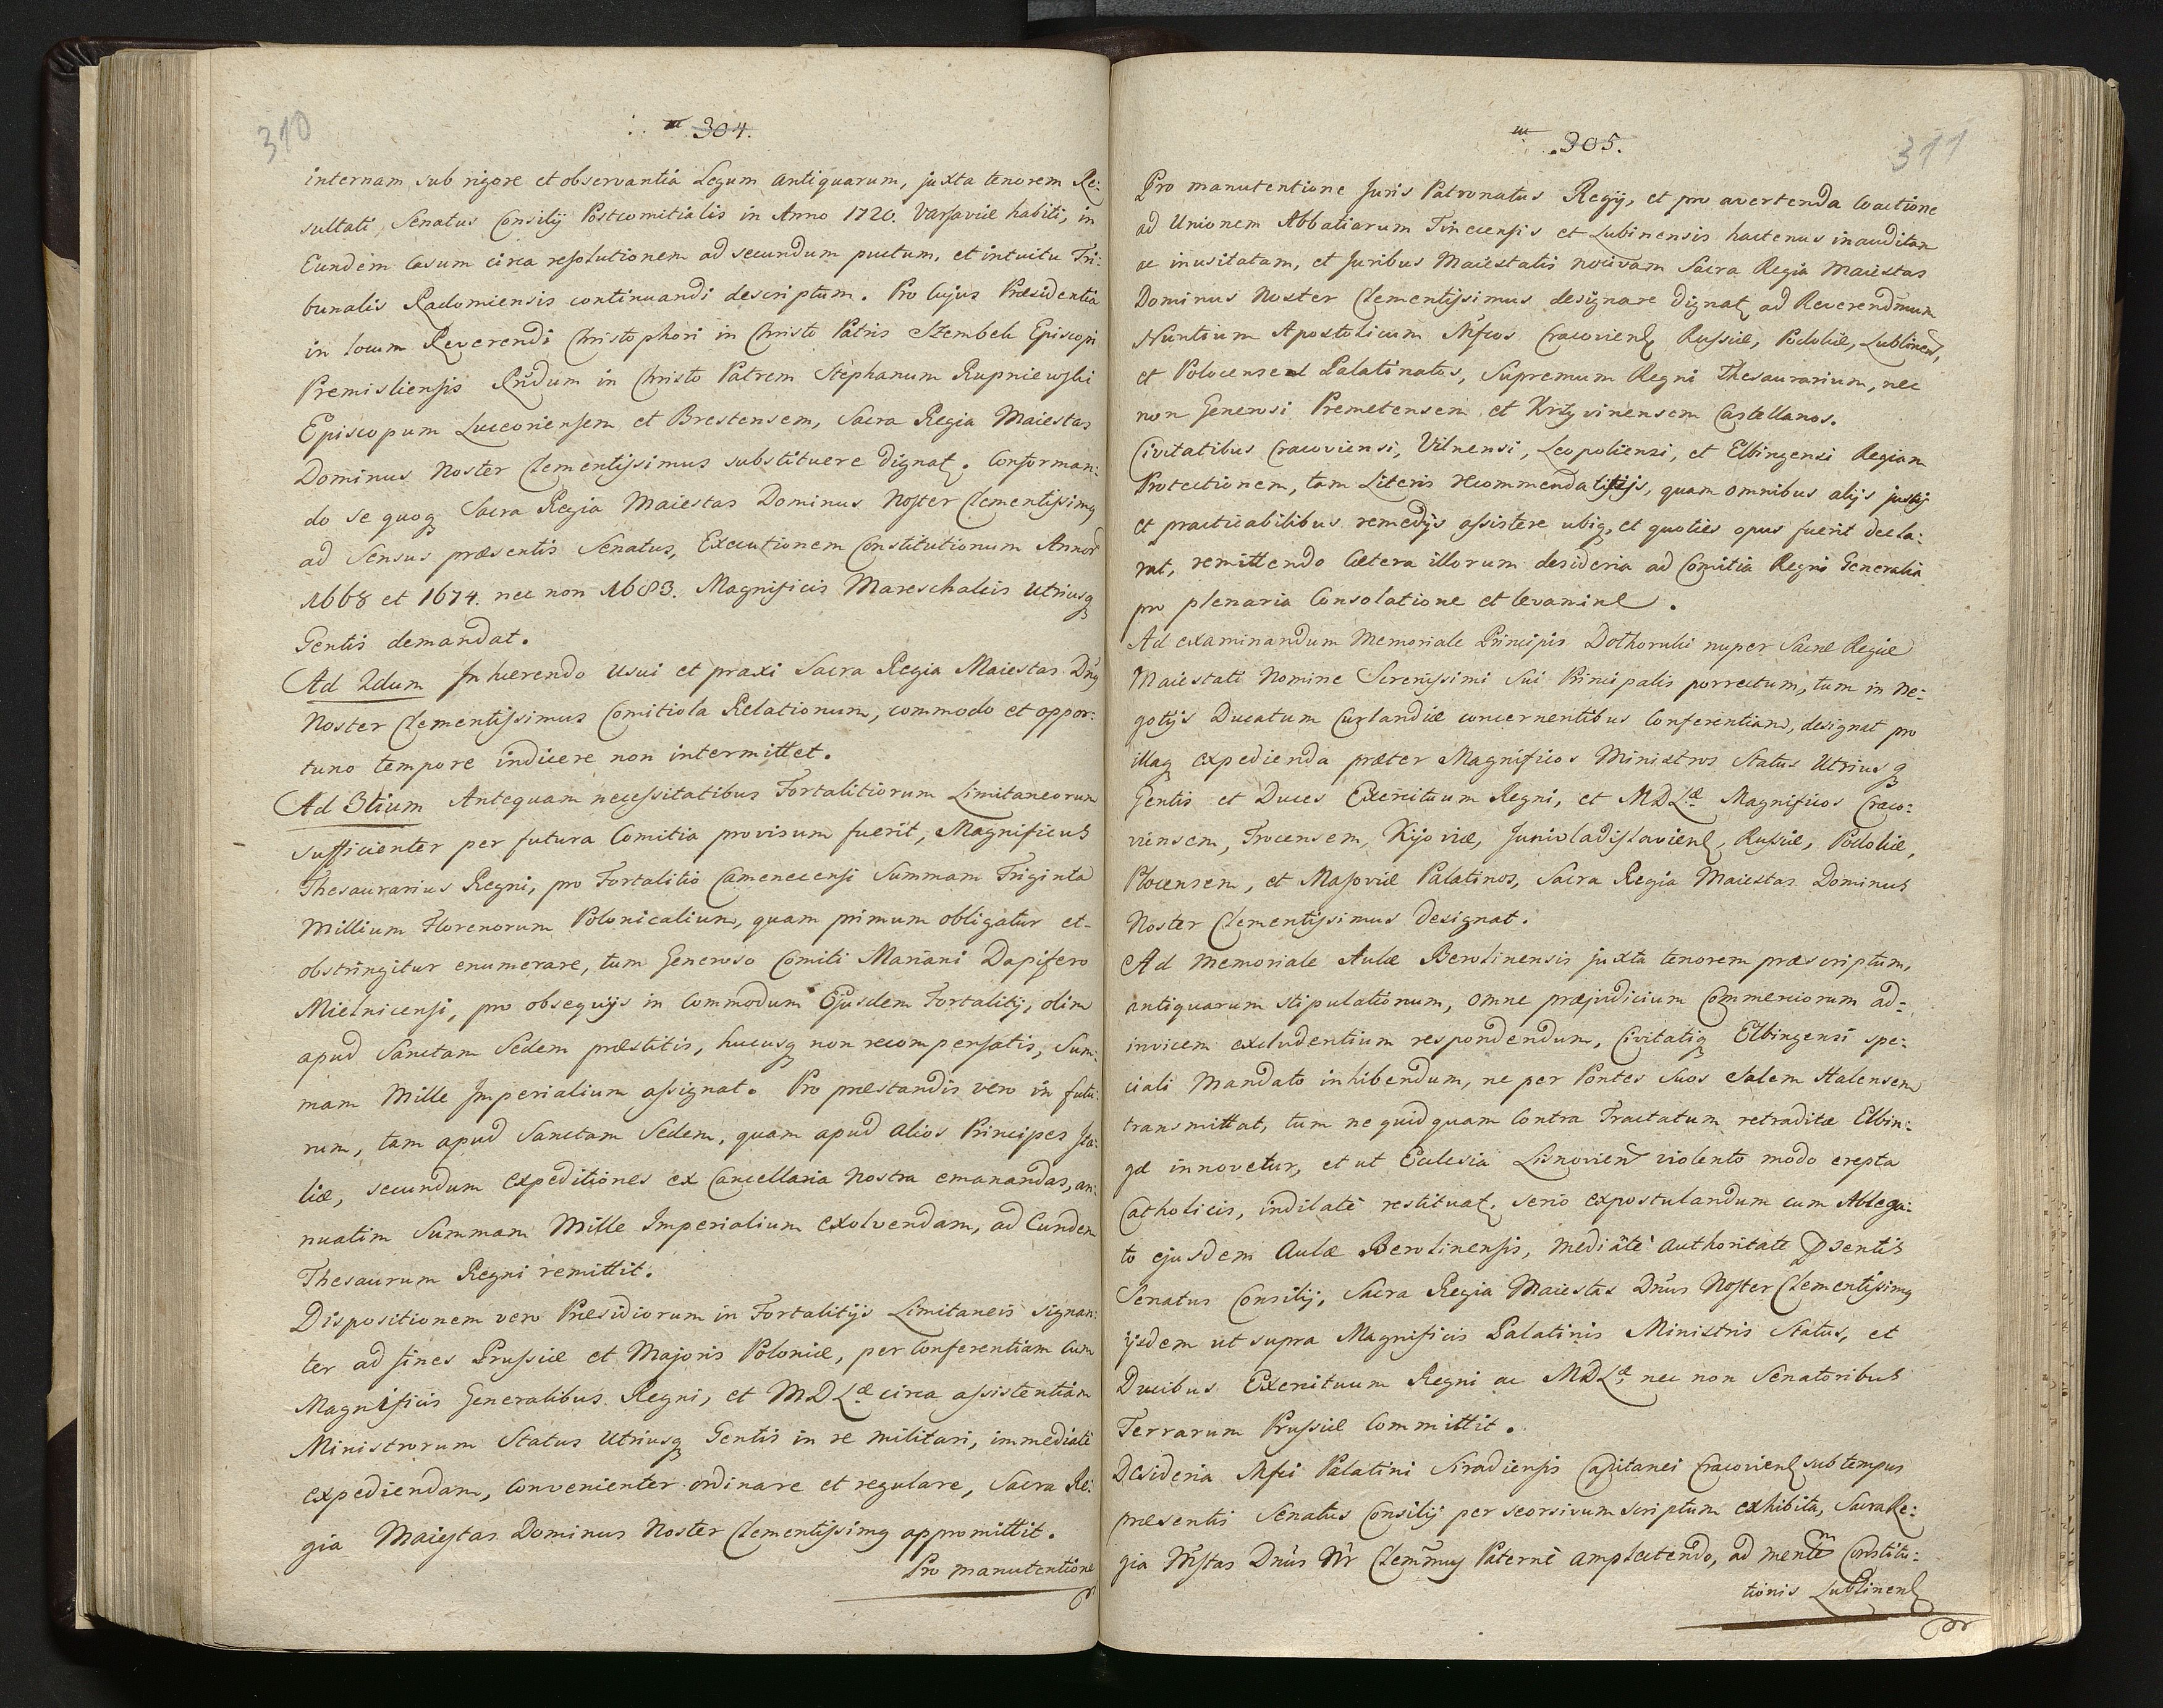 310
304.
internam sub rigore et observantia Legum antiquarum, juxta tenorem Re:
sultati Senatus Consilij Postcomitialis in Anno 1720. Varsaviæ habiti, in
Eundem Casum circa resolutionem ad secundum puctum, et intuitu Tri:
bunalis Radomiensis continuandi descriptum. Pro Cujus Præsidentia
in locum Reverendi Christophori in Christo Patris Szembek Episcopi
Premisliensis Rndum in Christo Patrem Stephanum Rupniewski
Episcopum Luceoriensem et Brestensem, Sacra Regia Maiestas
Dominus Noster Clementissimus substituere dignat. Conforman:
do se quoq Sacra Regia Maiestas Dominus Noster Clementissimq
ad Sensus præsentis Senatus, Executionem Constitutionum Annor
1668 et 1674. nec non 1683. Magnificis Mareschalcis Utriusq
Gentis demandat.
Ad 2dum Inhærendo usui et praxi Sacra Regia Maiestas Dnq
Noster Clementissimus Comitiola Relationum, commodo et oppor:
tuno tempore indicere non intermittet.
Ad 3tium Antequam necessitatibus Fortalitiorum Limitaneorum
sufficienter per futura Comitia provisum fuerit, Magnificus
Thesaurarius Regni, pro Fortalitio Camenecensi Summam Triginta
Millium Florenorum Polonicalium, quam primum obligatur et-
obstringitur enumerare, tum Generoso Comiti Mariani Dapifero
Mielnicensi, pro obsequijs in Commodum Ejusdem Fortalitij, olim
apud Sanctam Sedem præstitis, hucusq non recompensatis, Sum:
mam Mille Imperialium assignat. Pro præstandis vero in futu:
rum, tam apud Sanctam Sedem, quam apud alios Principes Ita:
liæ, secundum expeditiones ex Cancellaria Nostra emanandas, an:
nuatim Summam Mille Imperialium exolvendam, ad Eundem
Thesaurum Regni remittit.
Dispositionem vero Præsidiorum in Fortalitijs Limitaneis signan:
ter ad fines Prussiæ et Majoris Poloniæ, per Conferentiam Cum
Magnificis Generalibus Regni, et MDLæ circa assistentiam
Ministrorum Status Utriusq Gentis in re militari, immediate
expediendam, Convenienter ordinare et regulare, Sacra Re:
gia Maiestas Dominus Noster Clementissimq appromittit.
Pro manutentione
305.
311
Pro manutentione Juris Patronatus Regij, et pro avertenda Coactione
ad Unionem Abbatiarum Tinecensis et Lubinensis hactenus inauditam
ac inusitatam, et Juribus Maiestatis nocivam Sacra Regia Maiestas
Dominus Noster Clementissimus designare dignat ad Reverendmum
Nuntium Apostolicum Mfcos Cracovien, Russiæ, Podoliæ, Lublinen,
et Polocensem Palatinatos, Supremum Regni Thesaurarium, nec
non Generosi Premetensem et Krzyvinensem Castellanos.
Civitatibus Cracoviensi, Vilnensi, Leopoliensi, et Elbingensi Regiam
Protectionem, tam Literis recommendatitijs, quam omnibus alijs justis
et practicabilibus remedijs assistere ubiq, et quoties opus fuerit decla:
rat, remittendo Cætera illorum desideria ad Comitia Regni Generalia
pro plenaria Consolatione et levamine.
Ad examinandum Memoriale Principis Dolhoruki nuper Sacræ Regiæ
Maiestati Nomine Serenissimi Sui Principalis porrectum, tum in ne:
gotijs Ducatum Curlandiæ concernentibus Conferentiam, designat pro
illaq expedienda præter Magnificos Ministros Status Utriusq
Gentis et Duces Exercituum Regni, et MDLæ Magnificos Craco:
viensem, Trocensem, Kijoviæ, Junivladislavien, Russiæ, Podoliæ,
Plocensem, et Masoviæ Palatinos, Sacra Regia Maiestas Dominus
Noster Clementissimus designat.
Ad Memoriale Aulæ Berolinensis juxta tenorem præscriptum,
antiquarum stipulationum, omne præjudicium Commerciorum ad-
invicem excludentium respondendum, Civitatiq Elbingensi spe:
ciali Mandato inhibendum, ne per Pontes Suos Salem Halensem
transmittat, tum ne quidquam Contra Tractatum retraditæ Elbin:
gæ innovetur, et ut Ecclesia Lisnovien violento modo erepta
Catholicis, indilate restituat. serio expostulandum cum Ablega:
to ejusdem Aulæ Berolinensis, mediate authoritate Psentis
Senatus Consilij, Sacra Regia Maiestas Dnus Noster Clementissimq
ijsdem ut supra Magnificis Palatinis Ministris Status, et
Ducibus Exercituum Regni ac MDLæ nec non Senatoribus
Terrarum Prussiæ Committit.
Desideria Mfci Palatini Siradiensis Capitanei Cracovien sub tempus
præsentis Senatus Consilij per seorsivum scriptum exhibita, Sacra Re:
gia Mstas Dnus Nr Clemmus Paterne amplectendo, ad mentem Constitu:
tionis Lublinen